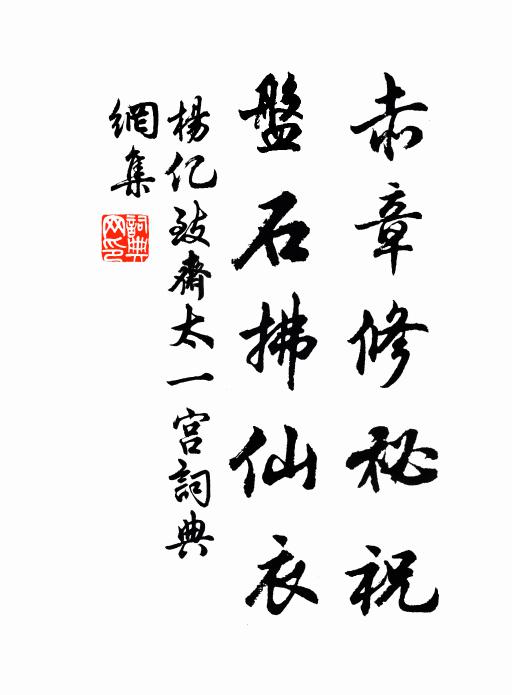 赤章修秘祝
盤石拂仙衣
楊億致齋太一宮詞典
網集
詞典網印